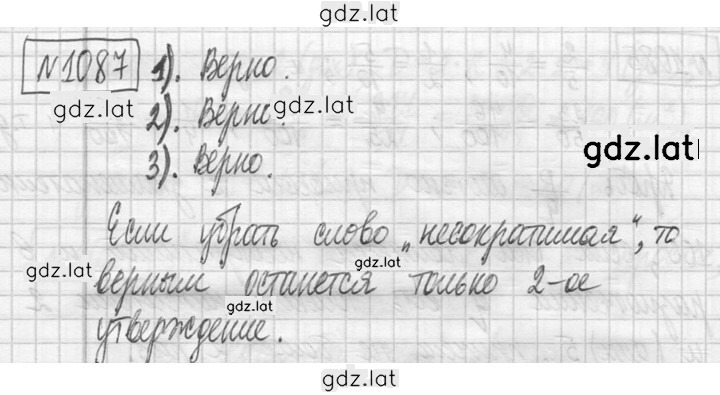 gdz.lat
№1087 1). Верно.
gdz.lat
2). Верно. gdz.lat
3). Верно.
gdz.lat
Если убрать слово „несократимая“, то
gdz.lat верным останется только 2-ое
gdz.lat
gdz.lat
утверждение.
gdz.lat